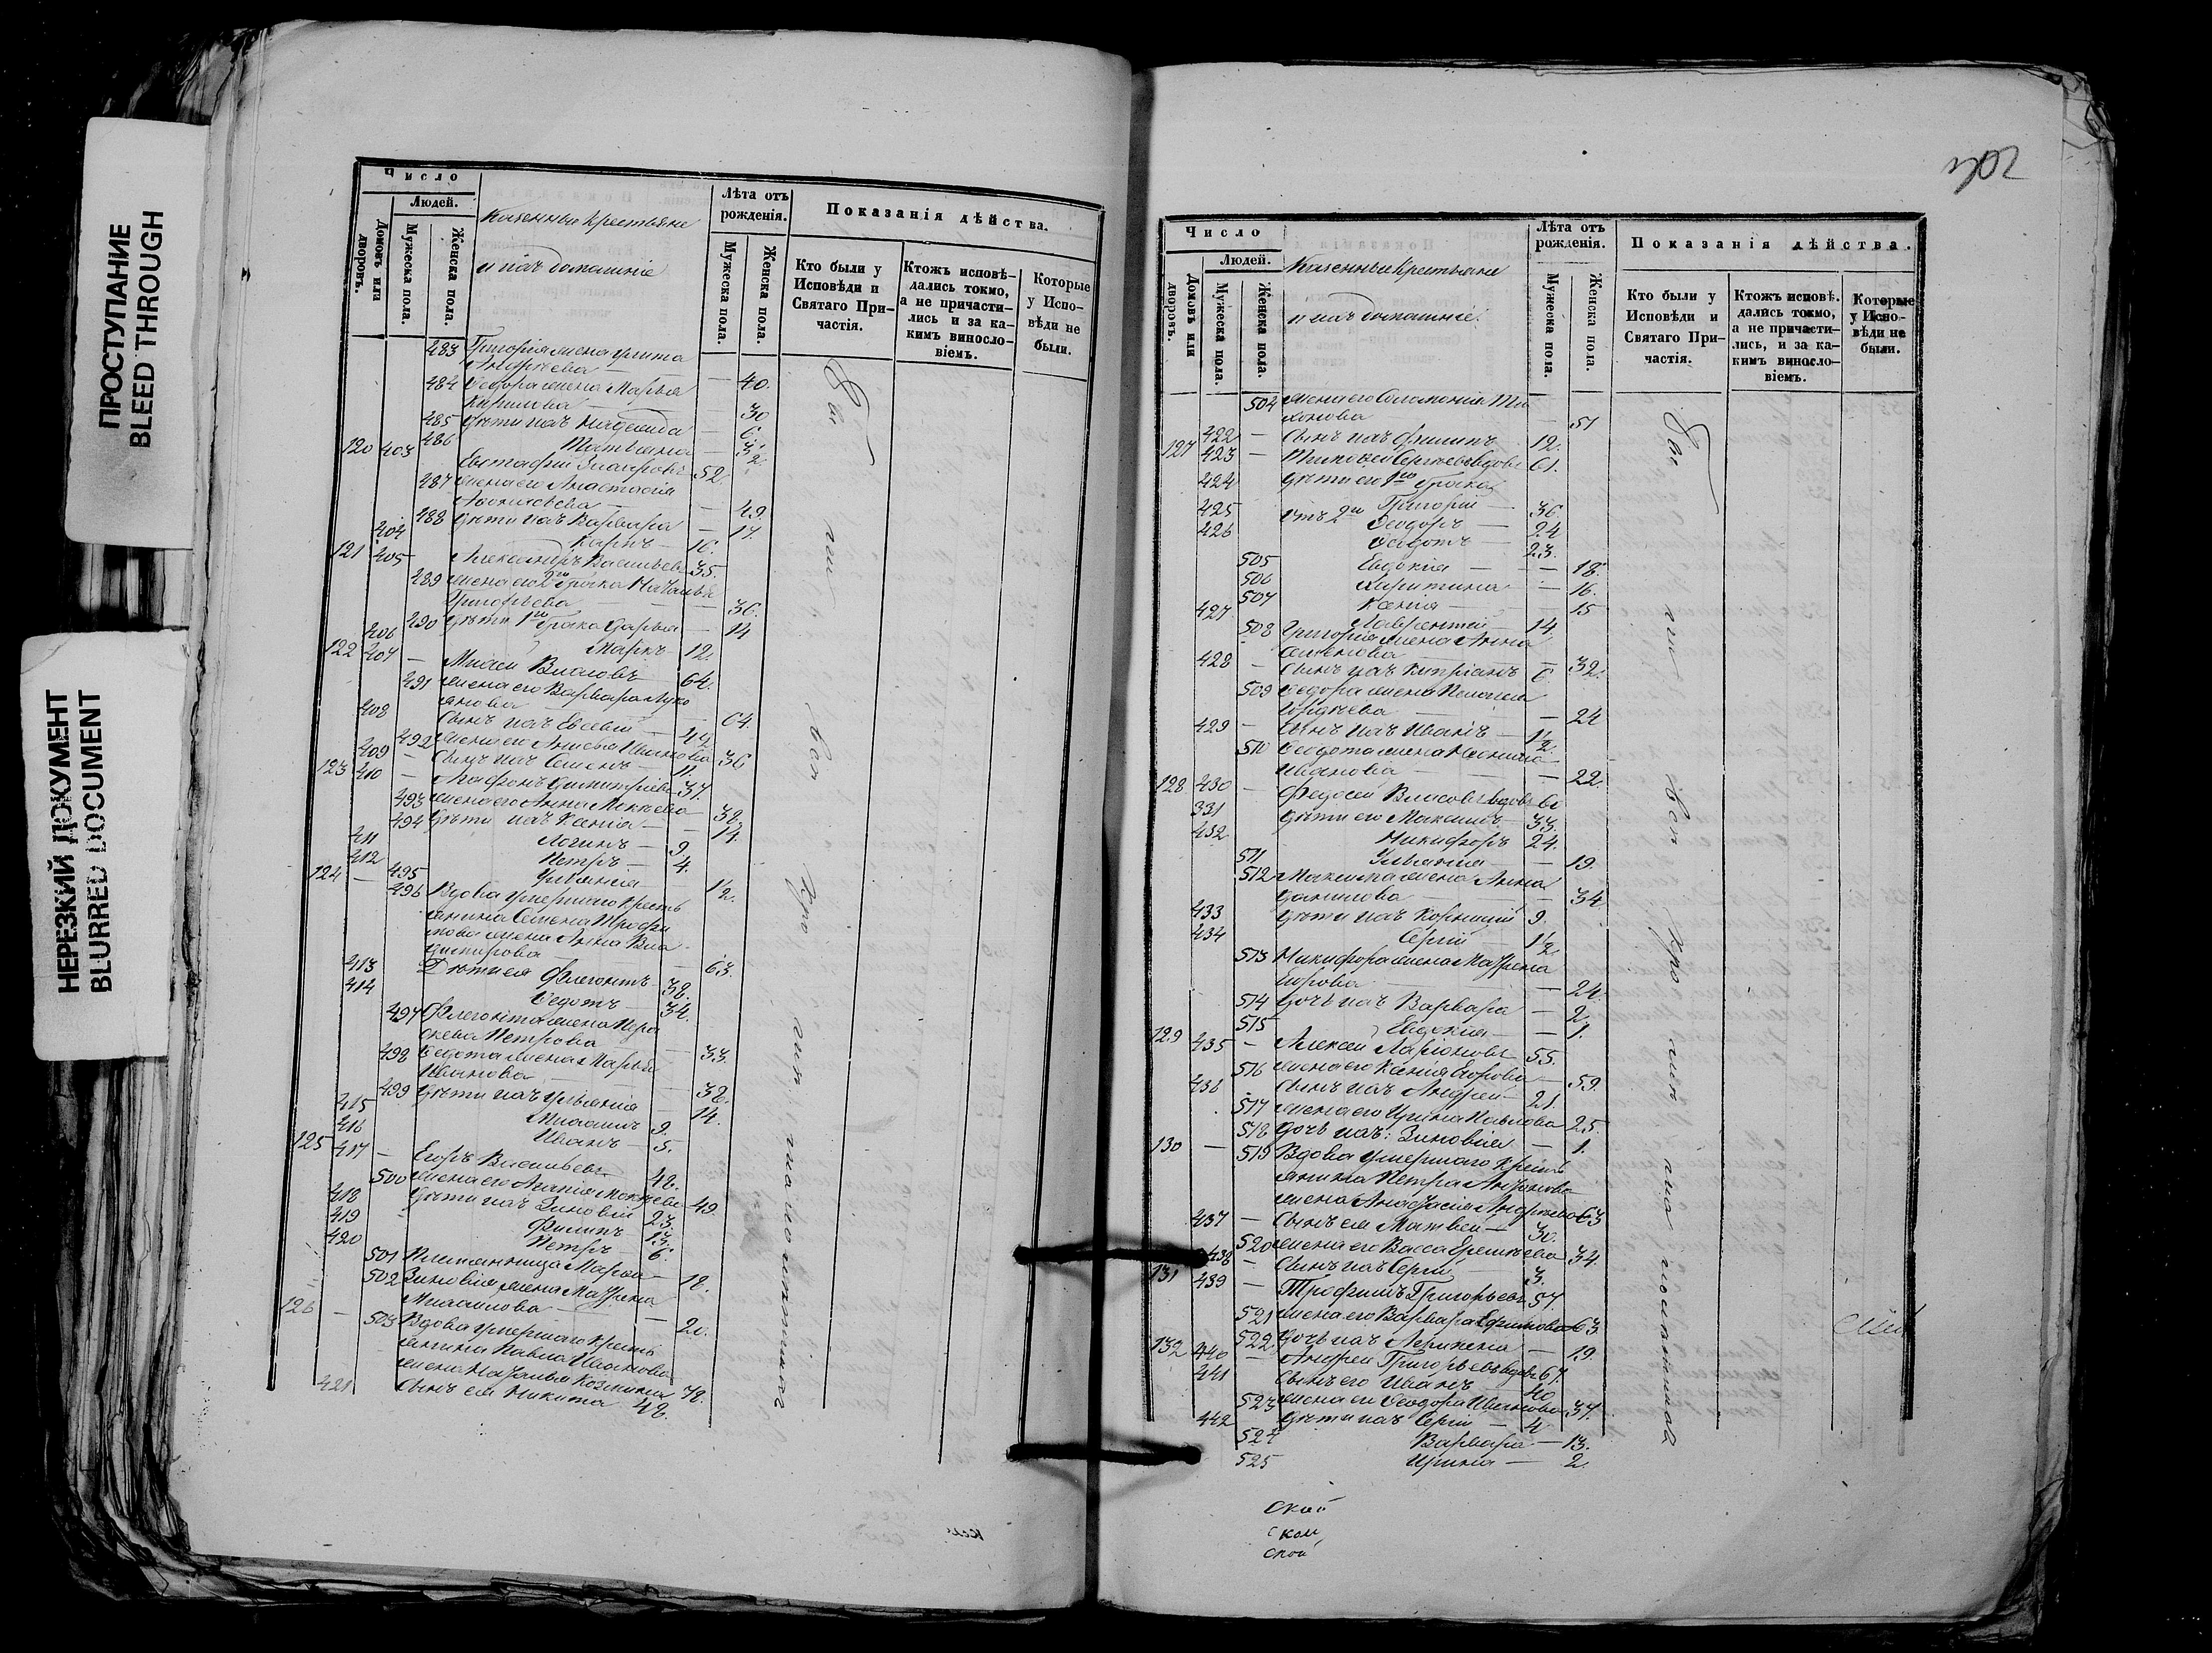 ПРОСТУПАНИЕ
BLEED THROUGH
НЕРЕЗКИЙ ДОКУМЕНТ
BLURRED DOCUMENT
Число
Людей.
Домовъ или дворовъ.
Мужеска пола.
Женска пола.
Казенные крестьяне
и ихъ домашніе
Лѣта отъ рожденія.
Мужеска пола.
Женска пола.
Показанія дѣйства.
Кто были у Исповѣди и Святаго При-частія.
Ктожъ исповѣ-дались токмо, а не причасти-лись и за ка-кимъ винослo-віемъ.
Которые у Испо-вѣди не были.
483 Григорія жена Улита
Андреева — 40.
484 Ѳедора жена Марья
Кирилова — 30
485 Дѣти ихъ Надежда — 6.
486 Татьяна —
120 403 Евстафій 52.
487 жена его Анастасія
49.
488 Дѣти ихъ Варвара — 17.
404 Карпъ — 10.
121 405 Александръ Васильевъ 35.
489 жена его 2го брака Наталья
Григорьева — 36.
490 Дѣти 1го брака Дарья — 14
406 Маркъ — 12.
122 407 — Власовъ — 64.
491 жена его Варвара Лукo
янова — 64.
408 Сынъ ихъ Евсевій — 42
492 жена его Ивановa 36
409 — Сынъ ихъ Семенъ — 11.
123 410 — Агафонъ Димитріевъ 37.
493 жена его Анна Мокѣева 38.
494 Дѣти ихъ Ксенія — 14.
411 Логинъ — 9.
412 Петръ — 4.
495 Ульянія — 1/2.
124 — 496 Вдова умершаго кресть
янина Семена Трофи
мова жена Анна Вла
димирова — 63.
413 Дѣти ея Флегонтъ — 38.
414 Ѳедотъ — 34.
497 Флегонта жена Пара
скева Петрова — 33.
498 Ѳедота жена Марья
Иванова — 38.
499 Дѣти ихъ Ульянія — 14.
415 Михаилъ 9.
416 Иванъ — 5.
125 417 — Егоръ Васильевъ 48.
500 жена его Агапія Мокѣева 49.
418 Дѣти ихъ Зиновій 23.
419 Филипъ 13.
420 Петръ — 6.
501 Племянница Марѳа — 18.
502 Зиновія жена Матрена
Михаилова — 20.
126 — 503 Вдова умершаго кресть
янина Павла Иванова
жена Наталья Козмина 78.
421 Сынъ ея Никита 48.
Число
Людей.
Домовъ или дворовъ.
Мужеска пола.
Женска пола.
Казенные крестьяне
и ихъ домашніе.
Лѣта отъ рожденія.
Мужеска пола.
Женска пола.
Показанія дѣйства.
Кто были у Исповѣди и Святаго При-частія.
Ктожъ исповѣ-дались токмо, а не причасти-лись, и за ка-кимъ винослo-віемъ.
Которые у Испо-вѣди не были.
504 жена его Соломонія Ти
хонова — 51
422 — Сынъ ихъ Филипъ 12.
127 423 — Тимофей Сергѣевъ вдовъ 61.
424 Дѣти его 1го брака
Григорій — 36.
425 отъ 2го Ѳеодоръ — 24
426 Ѳедотъ — 23.
505 Евдокія — 18.
506 Харитина — 16.
507 Ксенія — 15
427 Лаврентій — 14.
508 Григорія жена Анна
Семенова — 32.
428 — Сынъ ихъ Кипріанъ 6
509 Ѳедора жена Пелагея
Гордѣева — 24
429 — Сынъ ихъ Иванъ — 1/2.
510 Ѳеодота жена Ксенія
Иванова — 22.
128 430 — Федосей Власовъ вдовъ 60
331 Дѣти его Максимъ — 33.
432 Никифоръ 24.
511 Ульянія — 19.
512 Максима жена Анна
Данилова — 34
433 Дѣти ихъ Корнилій 9.
434 Сергій — 1/2.
513 Никифора жена Матрена
Егорова — 24.
514 Дочь ихъ Варвара — 2.
515 Евдокія — 1.
129 435 — Алексей Ларіоновъ 55.
516 жена его Ксенія Егорова — 59.
436 Сынъ ихъ Андрей — 21.
517 жена его Ирина Павлова 25.
518 Дочь ихъ: Зиновія — 1.
130 — 519 Вдова умершаго кресть
янина Петра Андронова
жена Анастасія Андреева 63
437 — Сынъ ея Матвей — 30.
520 жена его Васса Еремѣева 34.
438 — Сынъ ихъ Сергій 3.
131 439 — Трофимъ Григорьевъ 57.
521 жена его Варвара Ефимова 63
522 Дочь ихъ — 19.
132 440 — Андрей Григорьевъ вдовъ 67.
441 Сынъ его Иванъ — 40
523 жена его Ѳеодора Иванова 37.
442 Дѣти ихъ Сергій — 4
524 Варвара — 13.
525 Ирина — 2.
ской
ском
ской